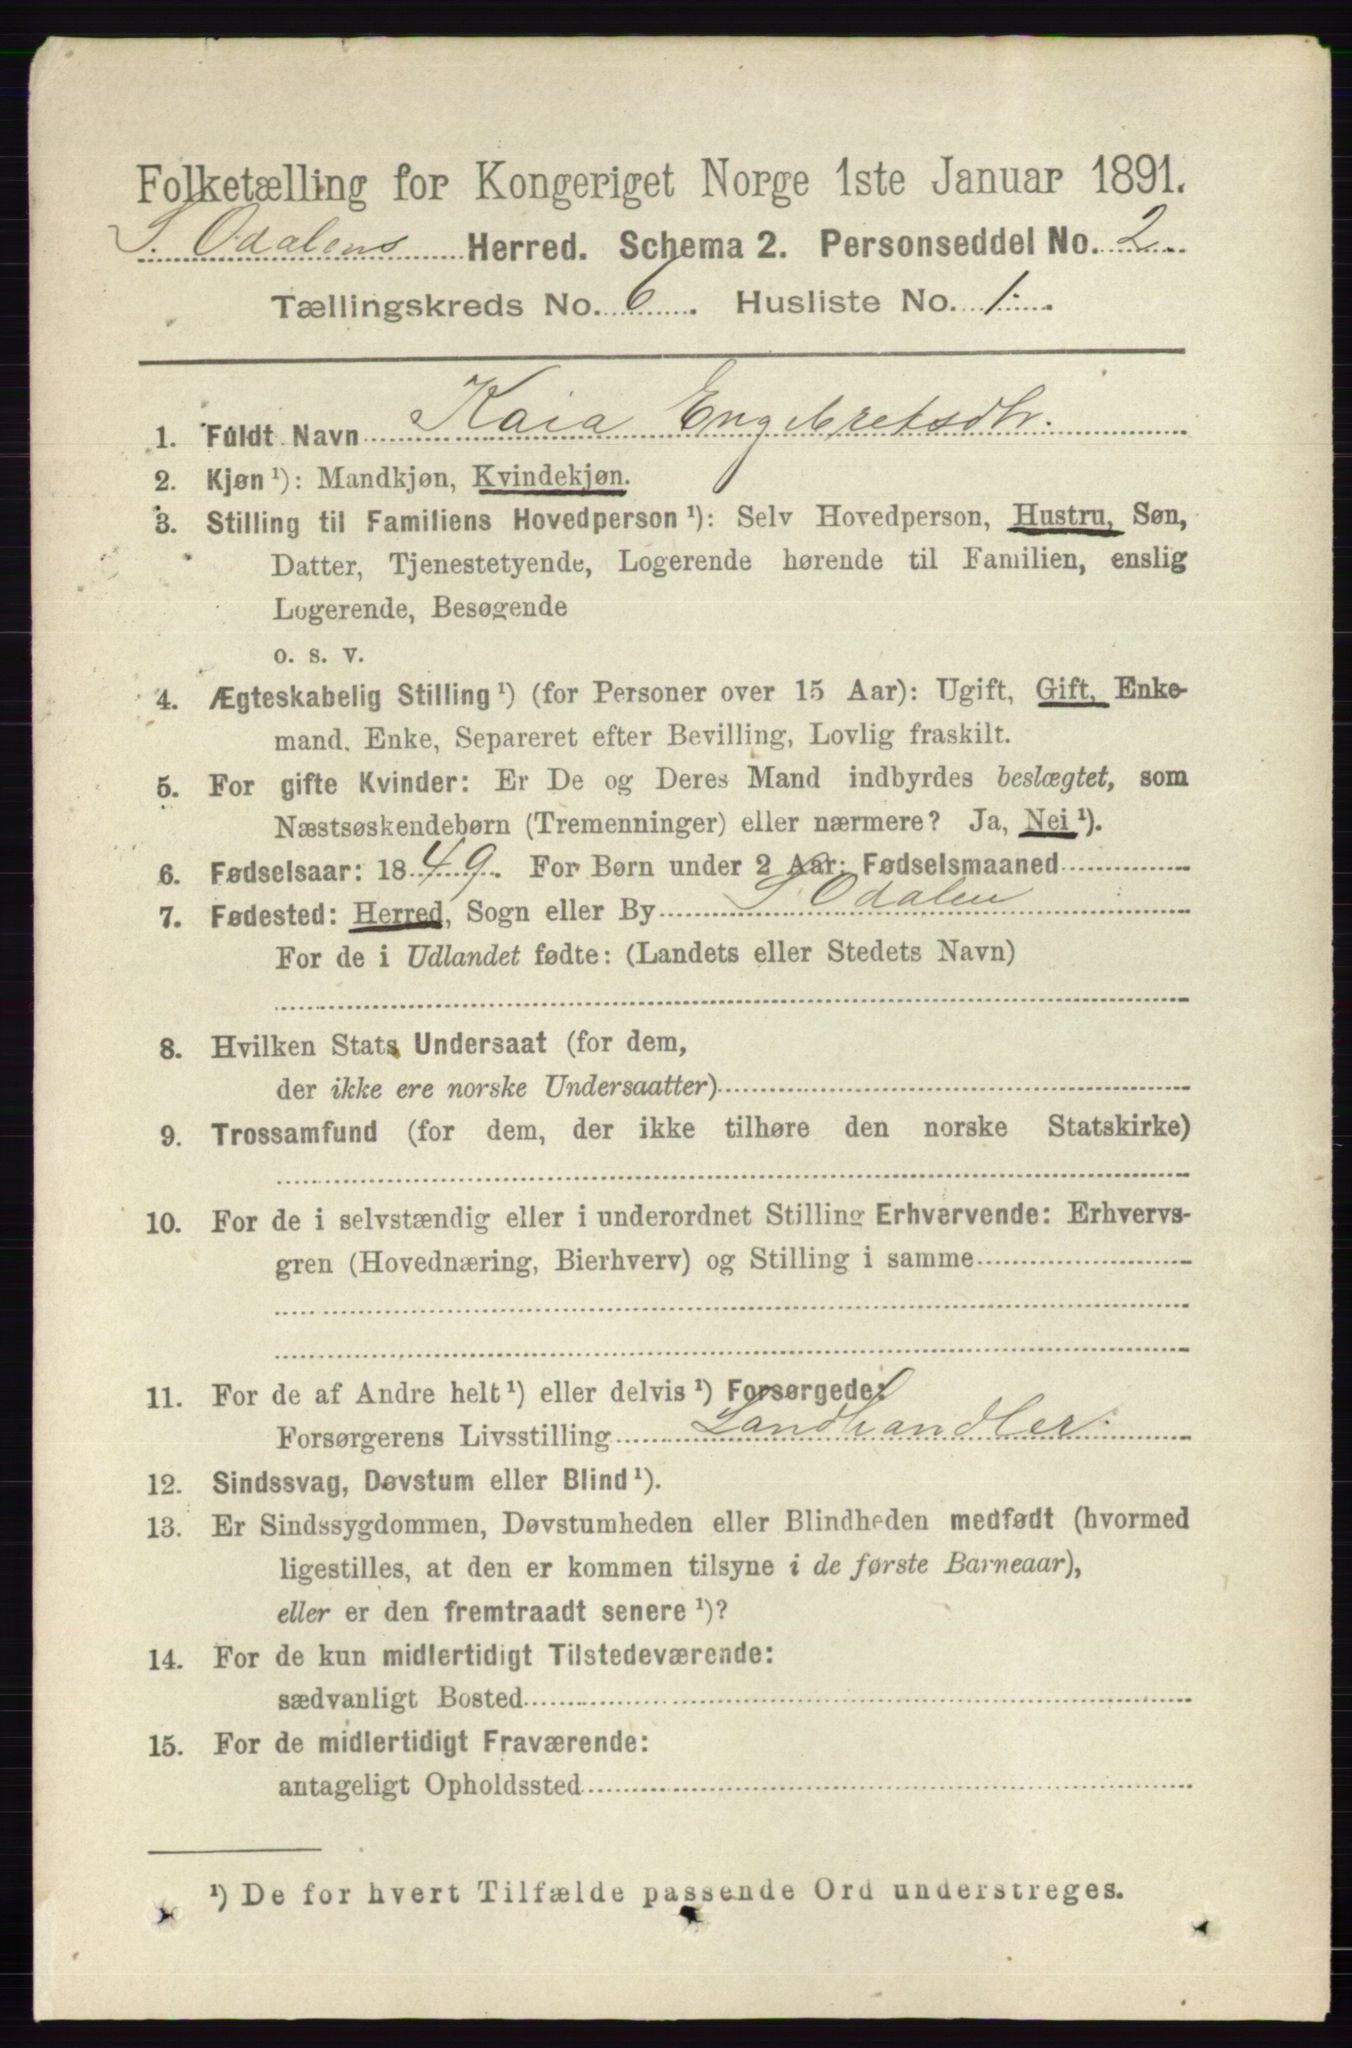 Folketælling for Kongeriget Norge 1ste Januar 1891.
S. Odalens Herred. Schema 2. Personseddel No. 2
Tællingskreds No. 6. Husliste No. 1.
1. Fuldt Navn Kaia Engebretsdtr.
2. Kjøn ¹): Mandkjøn, Kvindekjøn.
3. Stilling til Familiens Hovedperson ¹): Selv Hovedperson, Hustru, Søn,
Datter, Tjenestetyende, Logerende hørende til Familien, enslig
Logerende, Besøgende
o. s. v.
4. Ægteskabelig Stilling ¹) (for Personer over 15 Aar): Ugift, Gift, Enke-
mand, Enke, Separeret efter Bevilling, Lovlig fraskilt.
5. For gifte Kvinder: Er De og Deres Mand indbyrdes beslægtet, som
Næstsøskendebørn (Tremenninger) eller nærmere? Ja, Nei ¹).
6. Fødselsaar: 1849. For Børn under 2 Aar: Fødselsmaaned
7. Fødested: Herred, Sogn eller By S Odalen
For de i Udlandet fødte: (Landets eller Stedets Navn)
8. Hvilken Stats Undersaat (for dem,
der ikke ere norske Undersaatter)
9. Trossamfund (for dem, der ikke tilhøre den norske Statskirke)
10. For de i selvstændig eller i underordnet Stilling Erhvervende: Erhvervs-
gren (Hovednæring, Bierhverv) og Stilling i samme
11. For de af Andre helt ¹) eller delvis ¹) Forsørgede:
Forsørgerens Livsstilling Landhandler.
12. Sindssvag, Døvstum eller Blind ¹).
13. Er Sindssygdommen, Døvstumheden eller Blindheden medfødt (hvormed
ligestilles, at den er kommen tilsyne i de første Barneaar),
eller er den fremtraadt senere ¹)?
14. For de kun midlertidigt Tilstedeværende:
sædvanligt Bosted
15. For de midlertidigt Fraværende:
antageligt Opholdssted
¹) De for hvert Tilfælde passende Ord understreges.